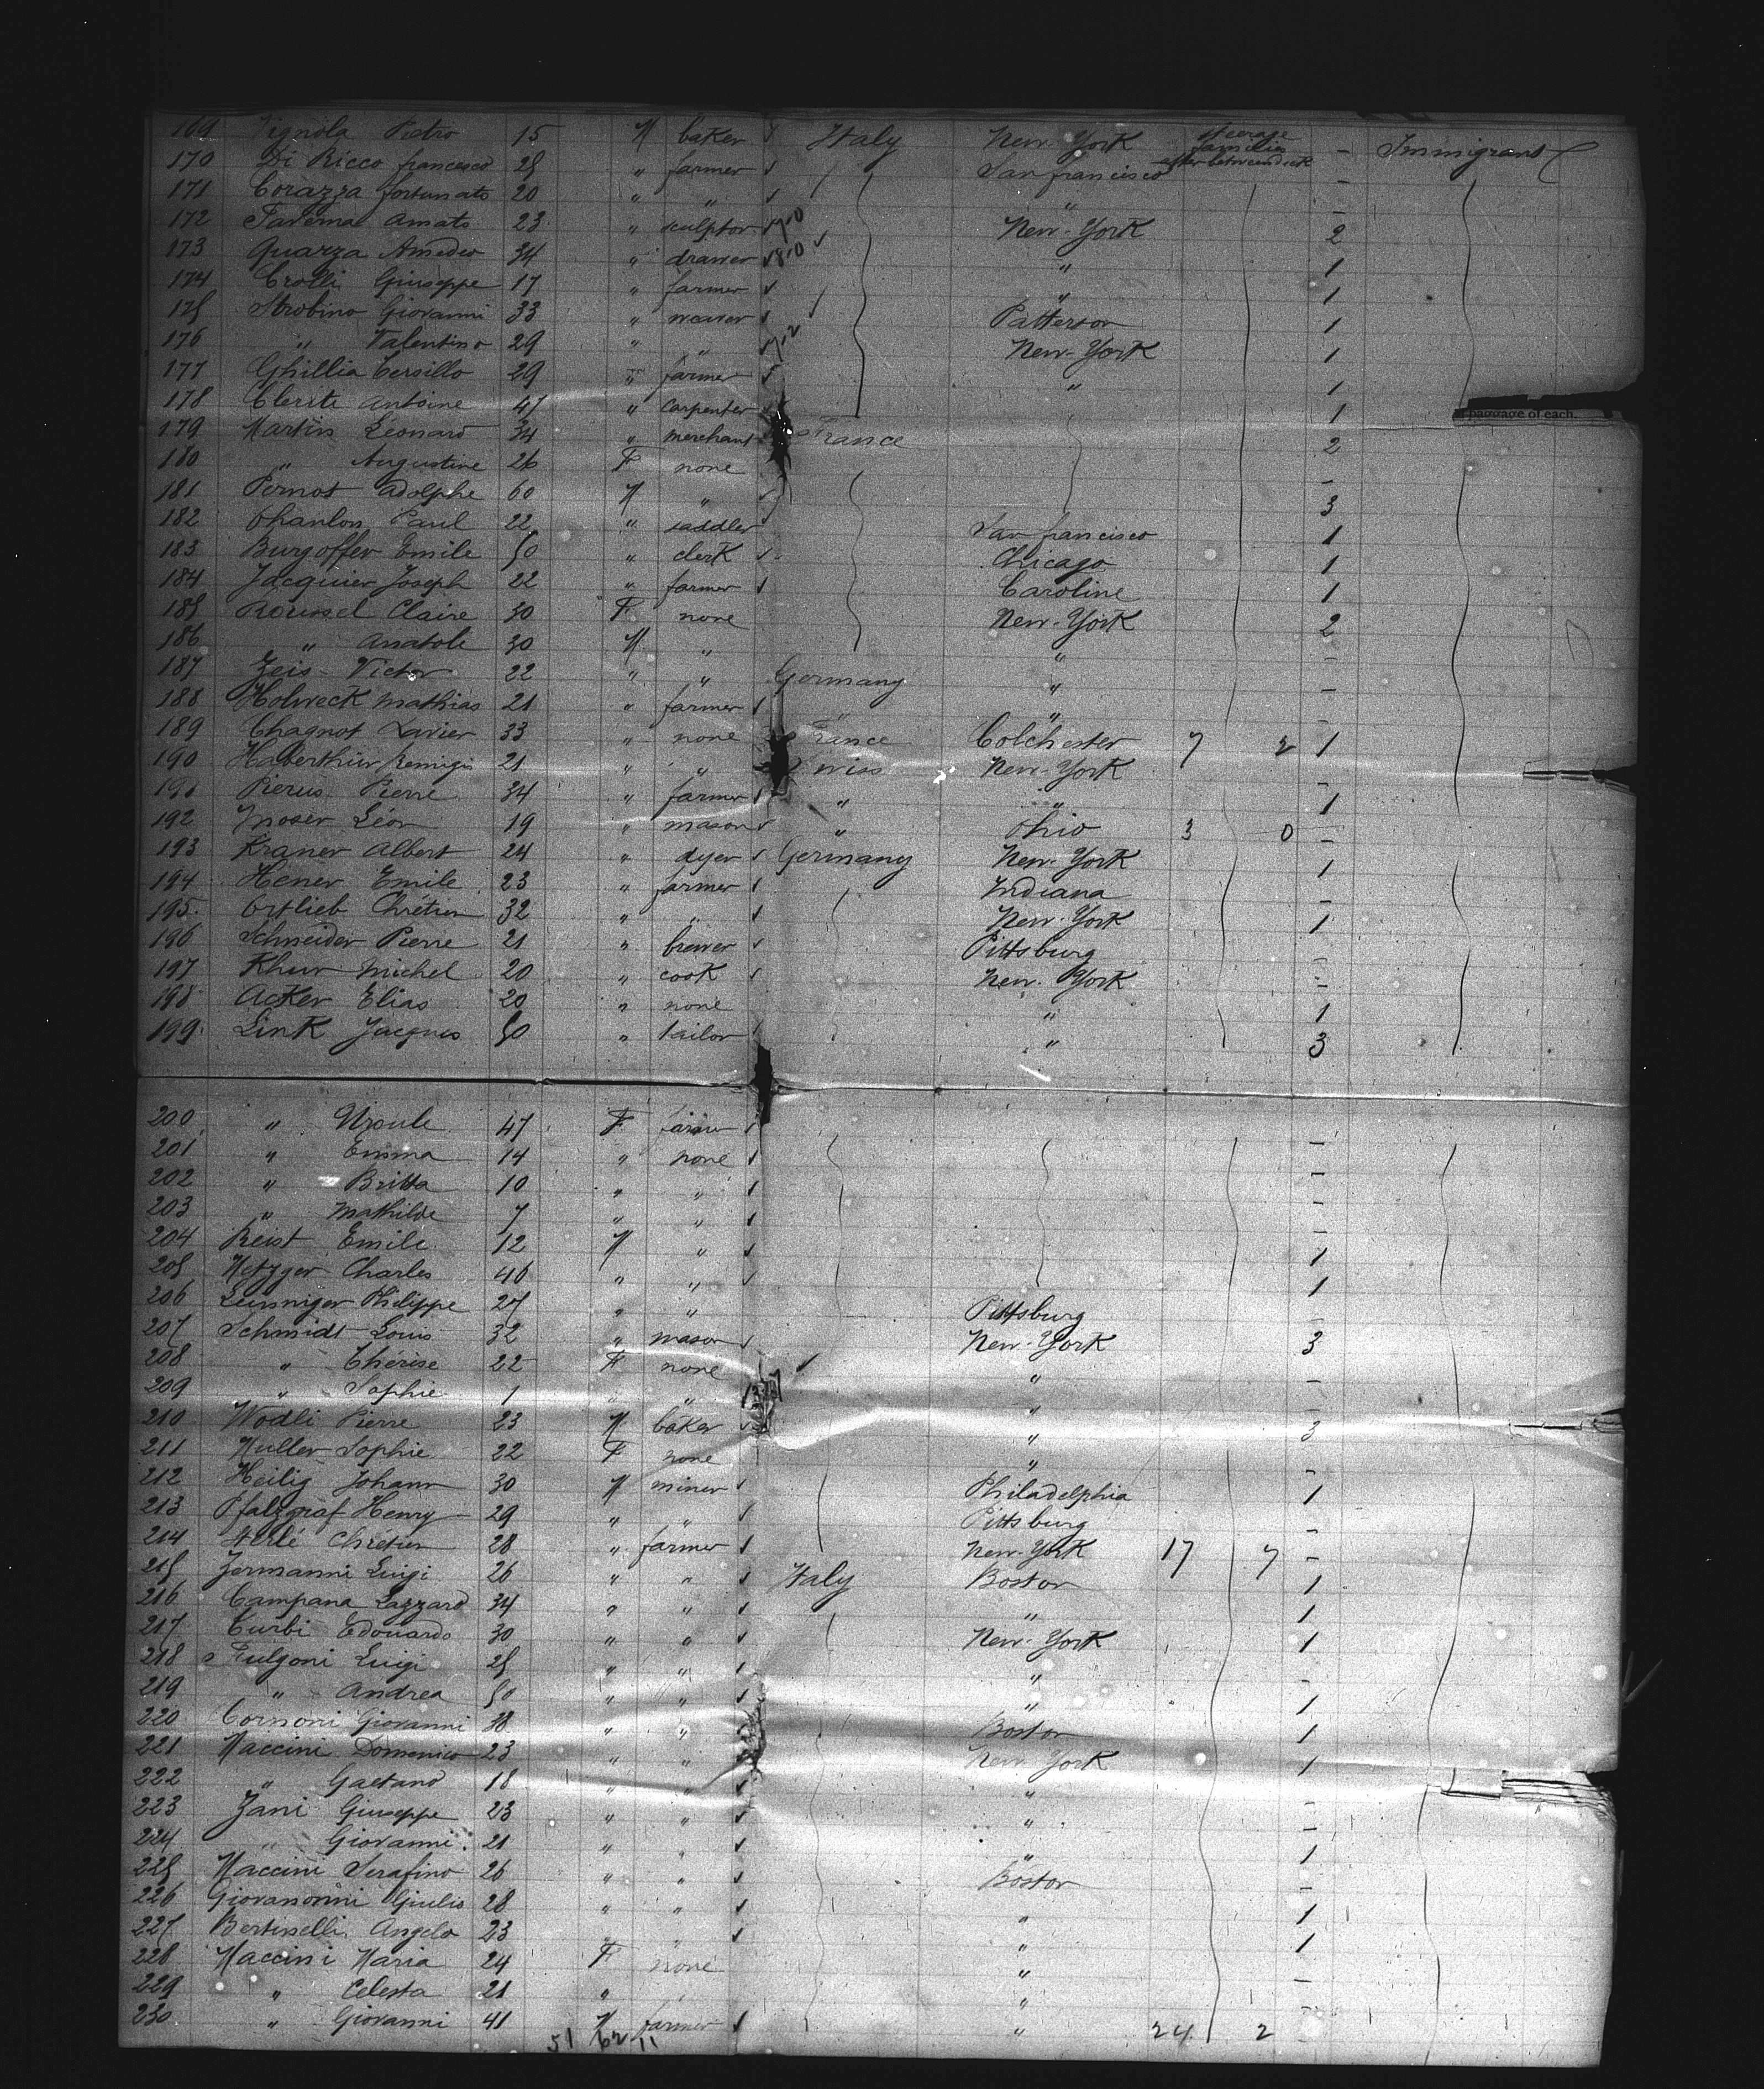 169 Vignola Pietro 15 M baker Italy New-York steerage families after betweendeck — Immigrant
170 Di Ricco francesco 25 " farmer San francisco —
171 Corazza fortunato 20 " " " —
172 Taverna Amato 23 " sculptor New-York 2
173 Quarza Amedeo 34 " drawer " 1
174 Crolli Giuseppe 17 " farmer " 1
175 Strobino Giovanni 33 " weaver Patterson 1
176 " Valentino 29 " " New-York 1
177 Ghillia Cersillo 29 " farmer " 1
178 Clerite Antoine 47 " carpenter 1
179 Martin Leonard 34 " merchant France 2
180 " Augustine 26 F none —
181 Pernot Adolphe 60 M " 3
182 Chanlon Paul 22 " saddler San francisco 1
183 Burgoffer Emile 50 " clerk Chicago 1
184 Jacquier Joseph 22 " farmer Caroline 1
185 Roussel Claire 30 F none New-York 2
186 " Anatole 30 M " " —
187 Zeis Victor 22 " " Germany " —
188 Holweck Mathias 21 " farmer " " —
189 Chagnot Xavier 33 " none France Colchester 7 2 1
190 Haberthür Remigi 21 " " Swiss New-York —
191 Pierus Pierre 34 " farmer " " 1
192 Moser Léon 19 " mason " Ohio 3 0 —
193 Kraner Albert 24 " dyer Germany New-York 1
194 Hener Emile 23 " farmer Indiana —
195 Ortlieb Chrétien 32 " " New-York 1
196 Schneider Pierre 21 " brewer Pittsburg —
197 Khur Michel 20 " cook New-York —
198 Acker Elias 20 " none " 1
199 Link Jacques 50 " tailor " 3
200 " Ursule 47 F —
201 " Emma 14 " none —
202 " Britta 10 " " —
203 " Mathilde 7 " " —
204 Reist Emile 12 M " 1
205 Metzger Charles 46 " " 1
206 Leinniger Philippe 27 " " Pittsburg —
207 Schmidt Louis 32 " mason New-York 3
208 " Thérèse 22 F none " —
209 " Sophie 1 " " " —
210 Wodli Pierre 23 M baker " 3
211 Muller Sophie 22 F none " —
212 Heilig Johann 30 M miner Philadelphia 1
213 Pfalzgraf Henry 29 " " Pittsburg —
214 Stellé Chrétien 28 " farmer New-York 17 7 —
215 Jermanni Luigi 26 " " Italy Boston 1
216 Campana Lazzaro 34 " " " 1
217 Curbi Edouardo 30 " " New-York 1
218 Fulgoni Luigi 25 " " " —
219 " Andrea 50 " " " 1
220 Cornoni Giovanni 38 " " Boston 1
221 Maccini Domenico 23 " " New-York 1
222 " Gaetano 18 " " " —
223 Zani Giuseppe 23 " " " —
224 " Giovanni 21 " " " 1
225 Maccini Serafino 26 " " Boston —
226 Giovanonini Giulio 28 " " " 1
227 Bertinelli Angelo 23 " " " 1
228 Maccini Maria 24 F none " —
229 " Celesta 21 " " —
230 " Giovanni 41 M farmer " 24 2
51 62 11